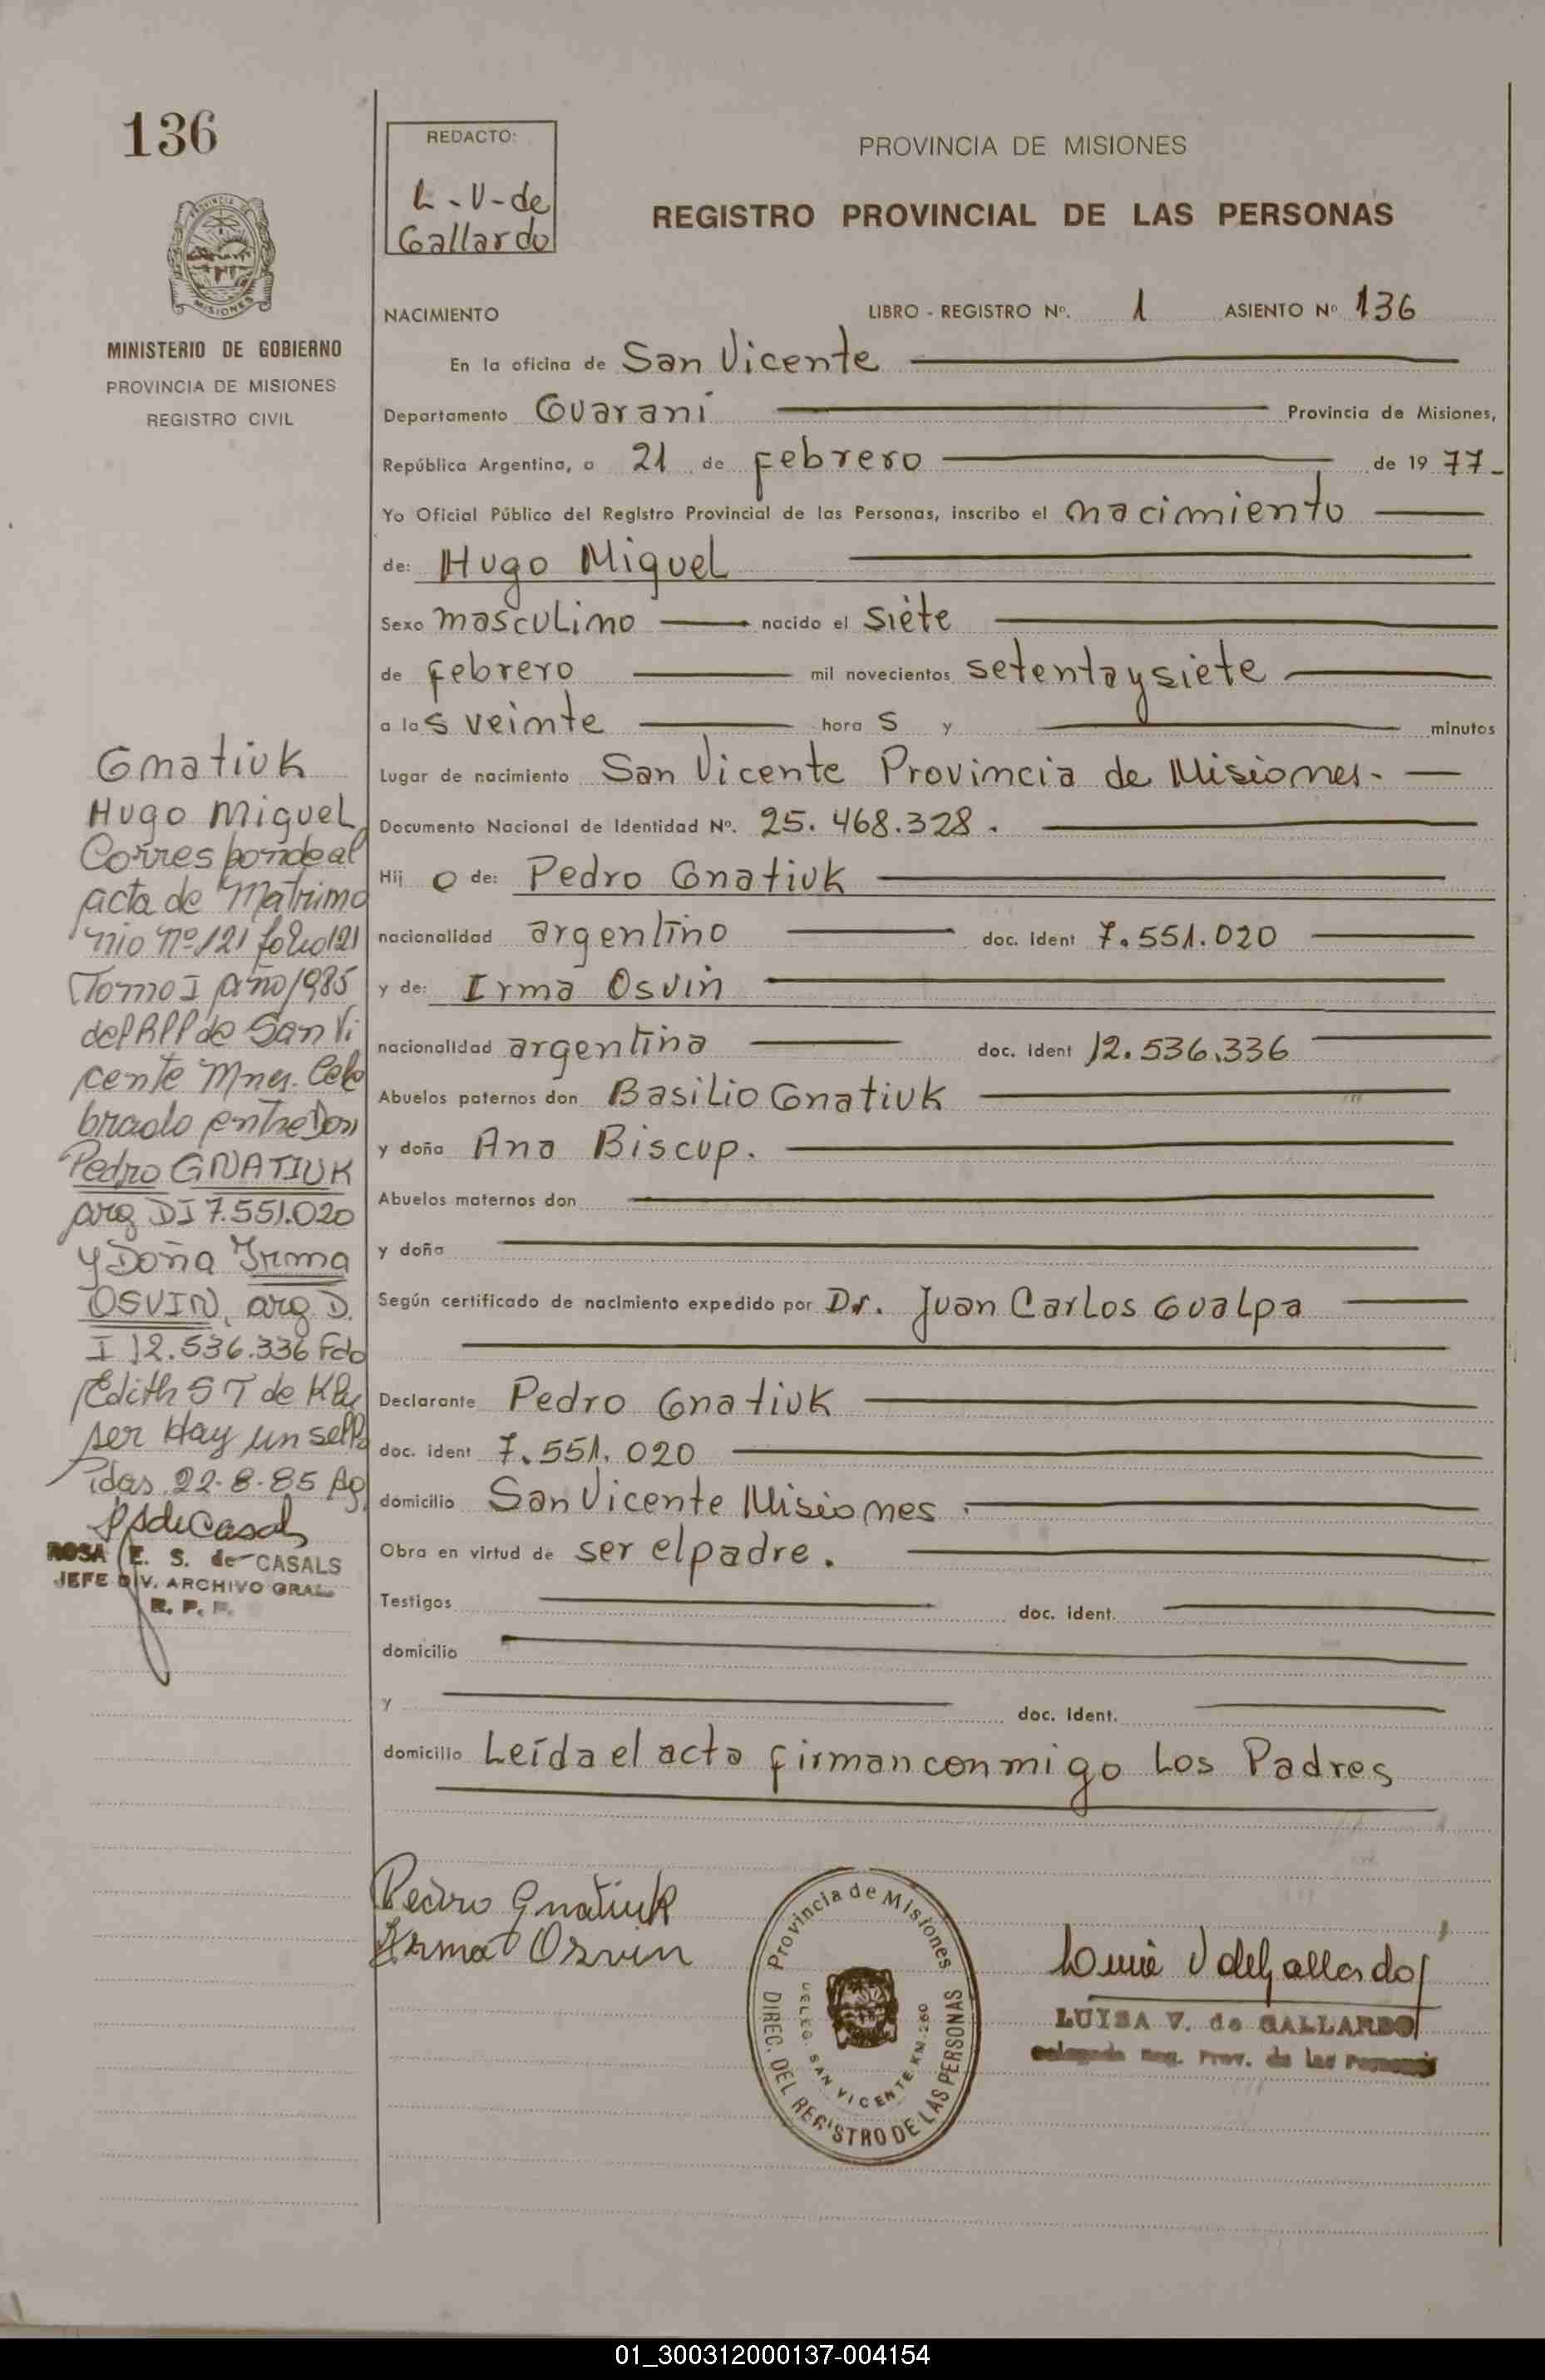 136
MINISTERIO DE GOBIERNO
PROVINCIA DE MISIONES
REGISTRO CIVIL
REDACTO:
L-V-de
Gallardo
PROVINCIA DE MISIONES
REGISTRO PROVINCIAL DE LAS PERSONAS
NACIMIENTO LIBRO - REGISTRO Nº. 1 ASIENTO Nº 136
En la oficina de San Vicente
Departamento Guaraní Provincia de Misiones,
República Argentina, a 21 de febrero de 19 77-
Yo Oficial Público del Registro Provincial de las Personas, inscribo el nacimiento
de: Hugo Miguel
Sexo masculino nacido el siete
de febrero mil novecientos setenta y siete
a las veinte horas y minutos
Lugar de nacimiento San Vicente Provincia de Misiones.
Documento Nacional de Identidad Nº. 25.468.328.
Hijo de: Pedro Gnatiuk
nacionalidad argentino doc. ident 7.551.020
y de: Irma Osvin
nacionalidad argentina doc. ident 12.536.336
Abuelos paternos don Basilio Gnatiuk
y doña Ana Biscup.
Abuelos maternos don
y doña
Según certificado de nacimiento expedido por Dr. Juan Carlos Gualpa
Declarante Pedro Gnatiuk
doc. ident 7.551.020
domicilio San Vicente Misiones.
Obra en virtud de ser el padre.
Testigos doc. ident.
domicilio
y doc. ident.
domicilio Leída el acta firman conmigo Los Padres
Gnatiuk
Hugo Miguel
Corresponde al
acta de Matrimo
nio nº 121 folio 121
Tomo I año 1985
del RPP de San Vi
cente Mnes. Cele
brado entre Don
Pedro GNATIUK
arg DI 7.551.020
y Doña Irma
OSVIN, arg. D.
I 12.536.336 Fdo
Edith S T de Klu
ser Hay un sello
Pdas. 22-8-85 Ag
ROSA E. S. de CASALS
JEFE DIV. ARCHIVO GRAL.
R. P. P.
Pedro Gnatiuk
Irma Osvin
Provincia de Misiones
DIREC. DEL REGISTRO DE LAS PERSONAS
DELEG. SAN VICENTE KM. 260
Luisa V de Gallardo
LUISA V. de GALLARDO
Delegada Reg. Prov. de las Personas
01_300312000137-004154